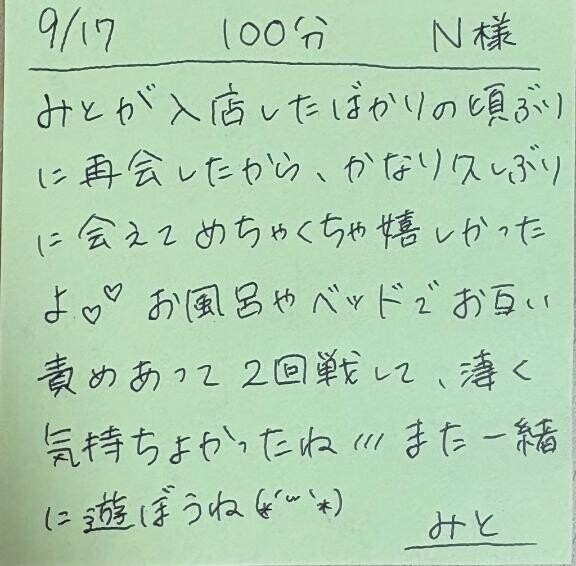 9/17 100分 N様
みとが入店したばかりの頃ぶり
に再会したから、かなり久しぶり
に会えてめちゃくちゃ嬉しかった
よ♡♡ お風呂やベッドでお互い
責めあって2回戦して、凄く
気持ちよかったね/// また一緒
に遊ぼうね(*´꒳`*)
みと